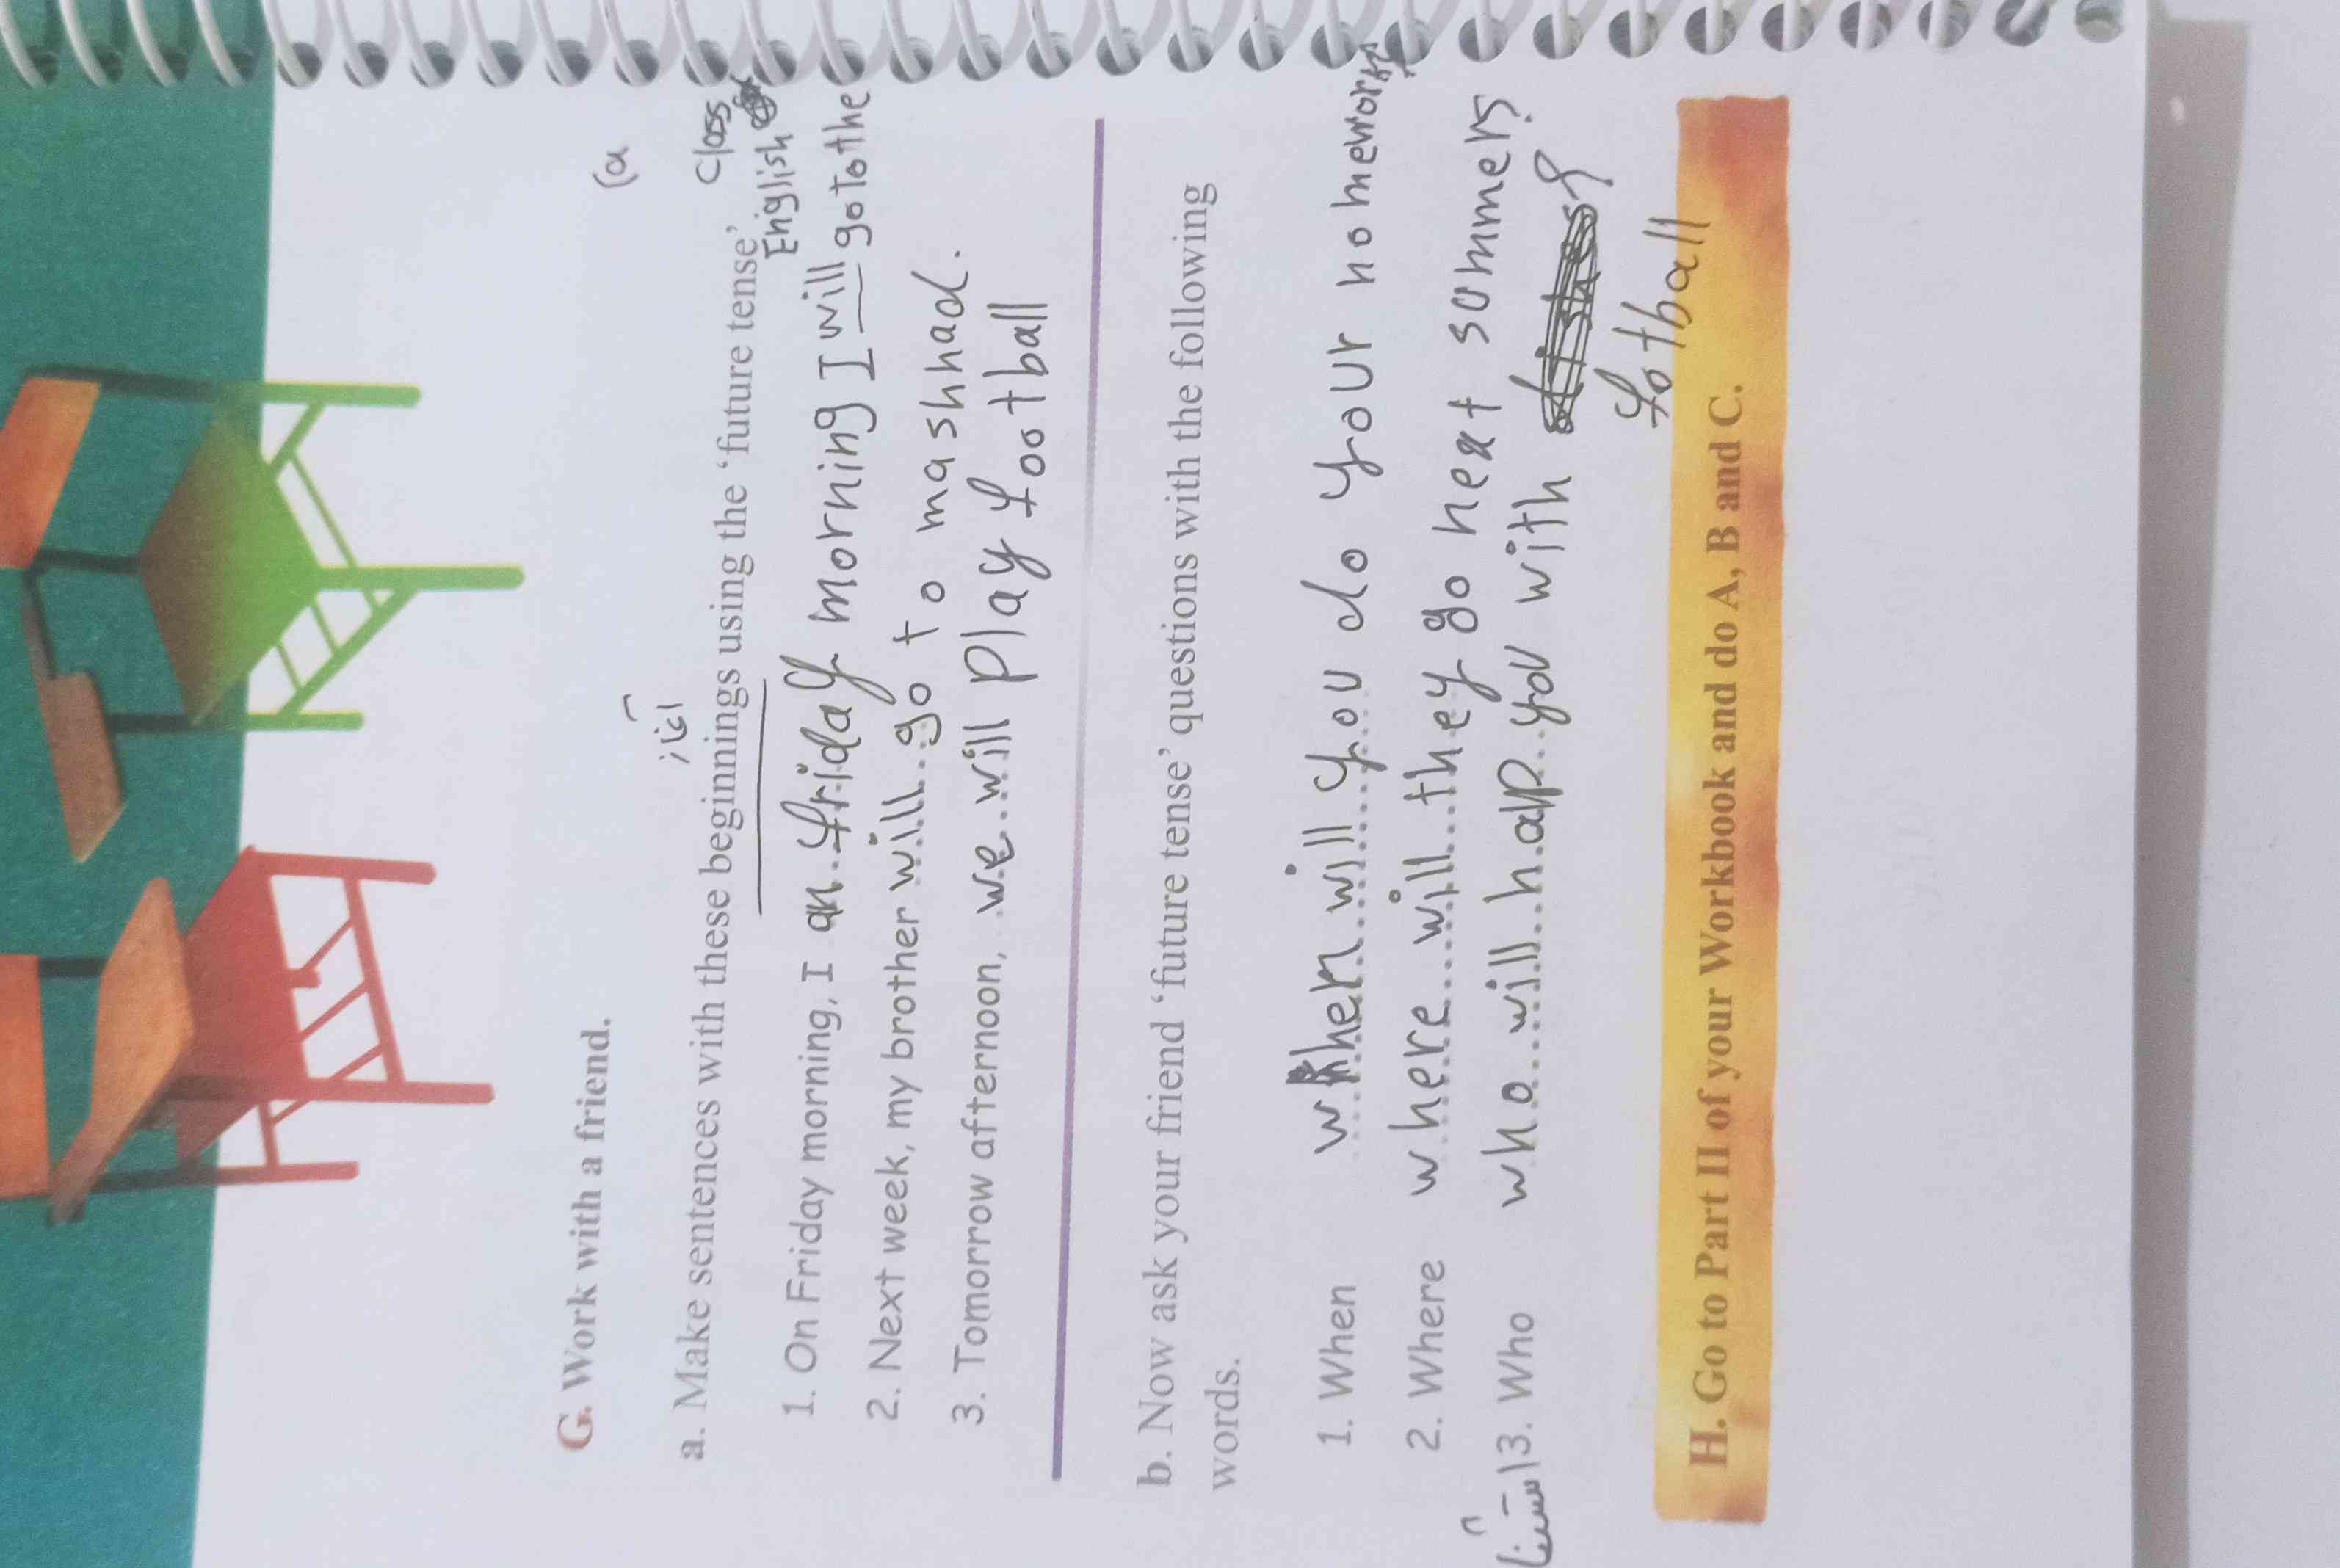 G. Work with a friend.
(a
آغاز
a. Make sentences with these beginnings using the ‘future tense’
class
English
1. On Friday morning, I an friday morning I will go to the
2. Next week, my brother will go to mashhad.
3. Tomorrow afternoon, we will play football
b. Now ask your friend ‘future tense’ questions with the following
words.
1. When when will you do your homework
2. Where where will they go next summer?
3. Who who will halp you with dishes?
fotball
H. Go to Part II of your Workbook and do A, B and C.